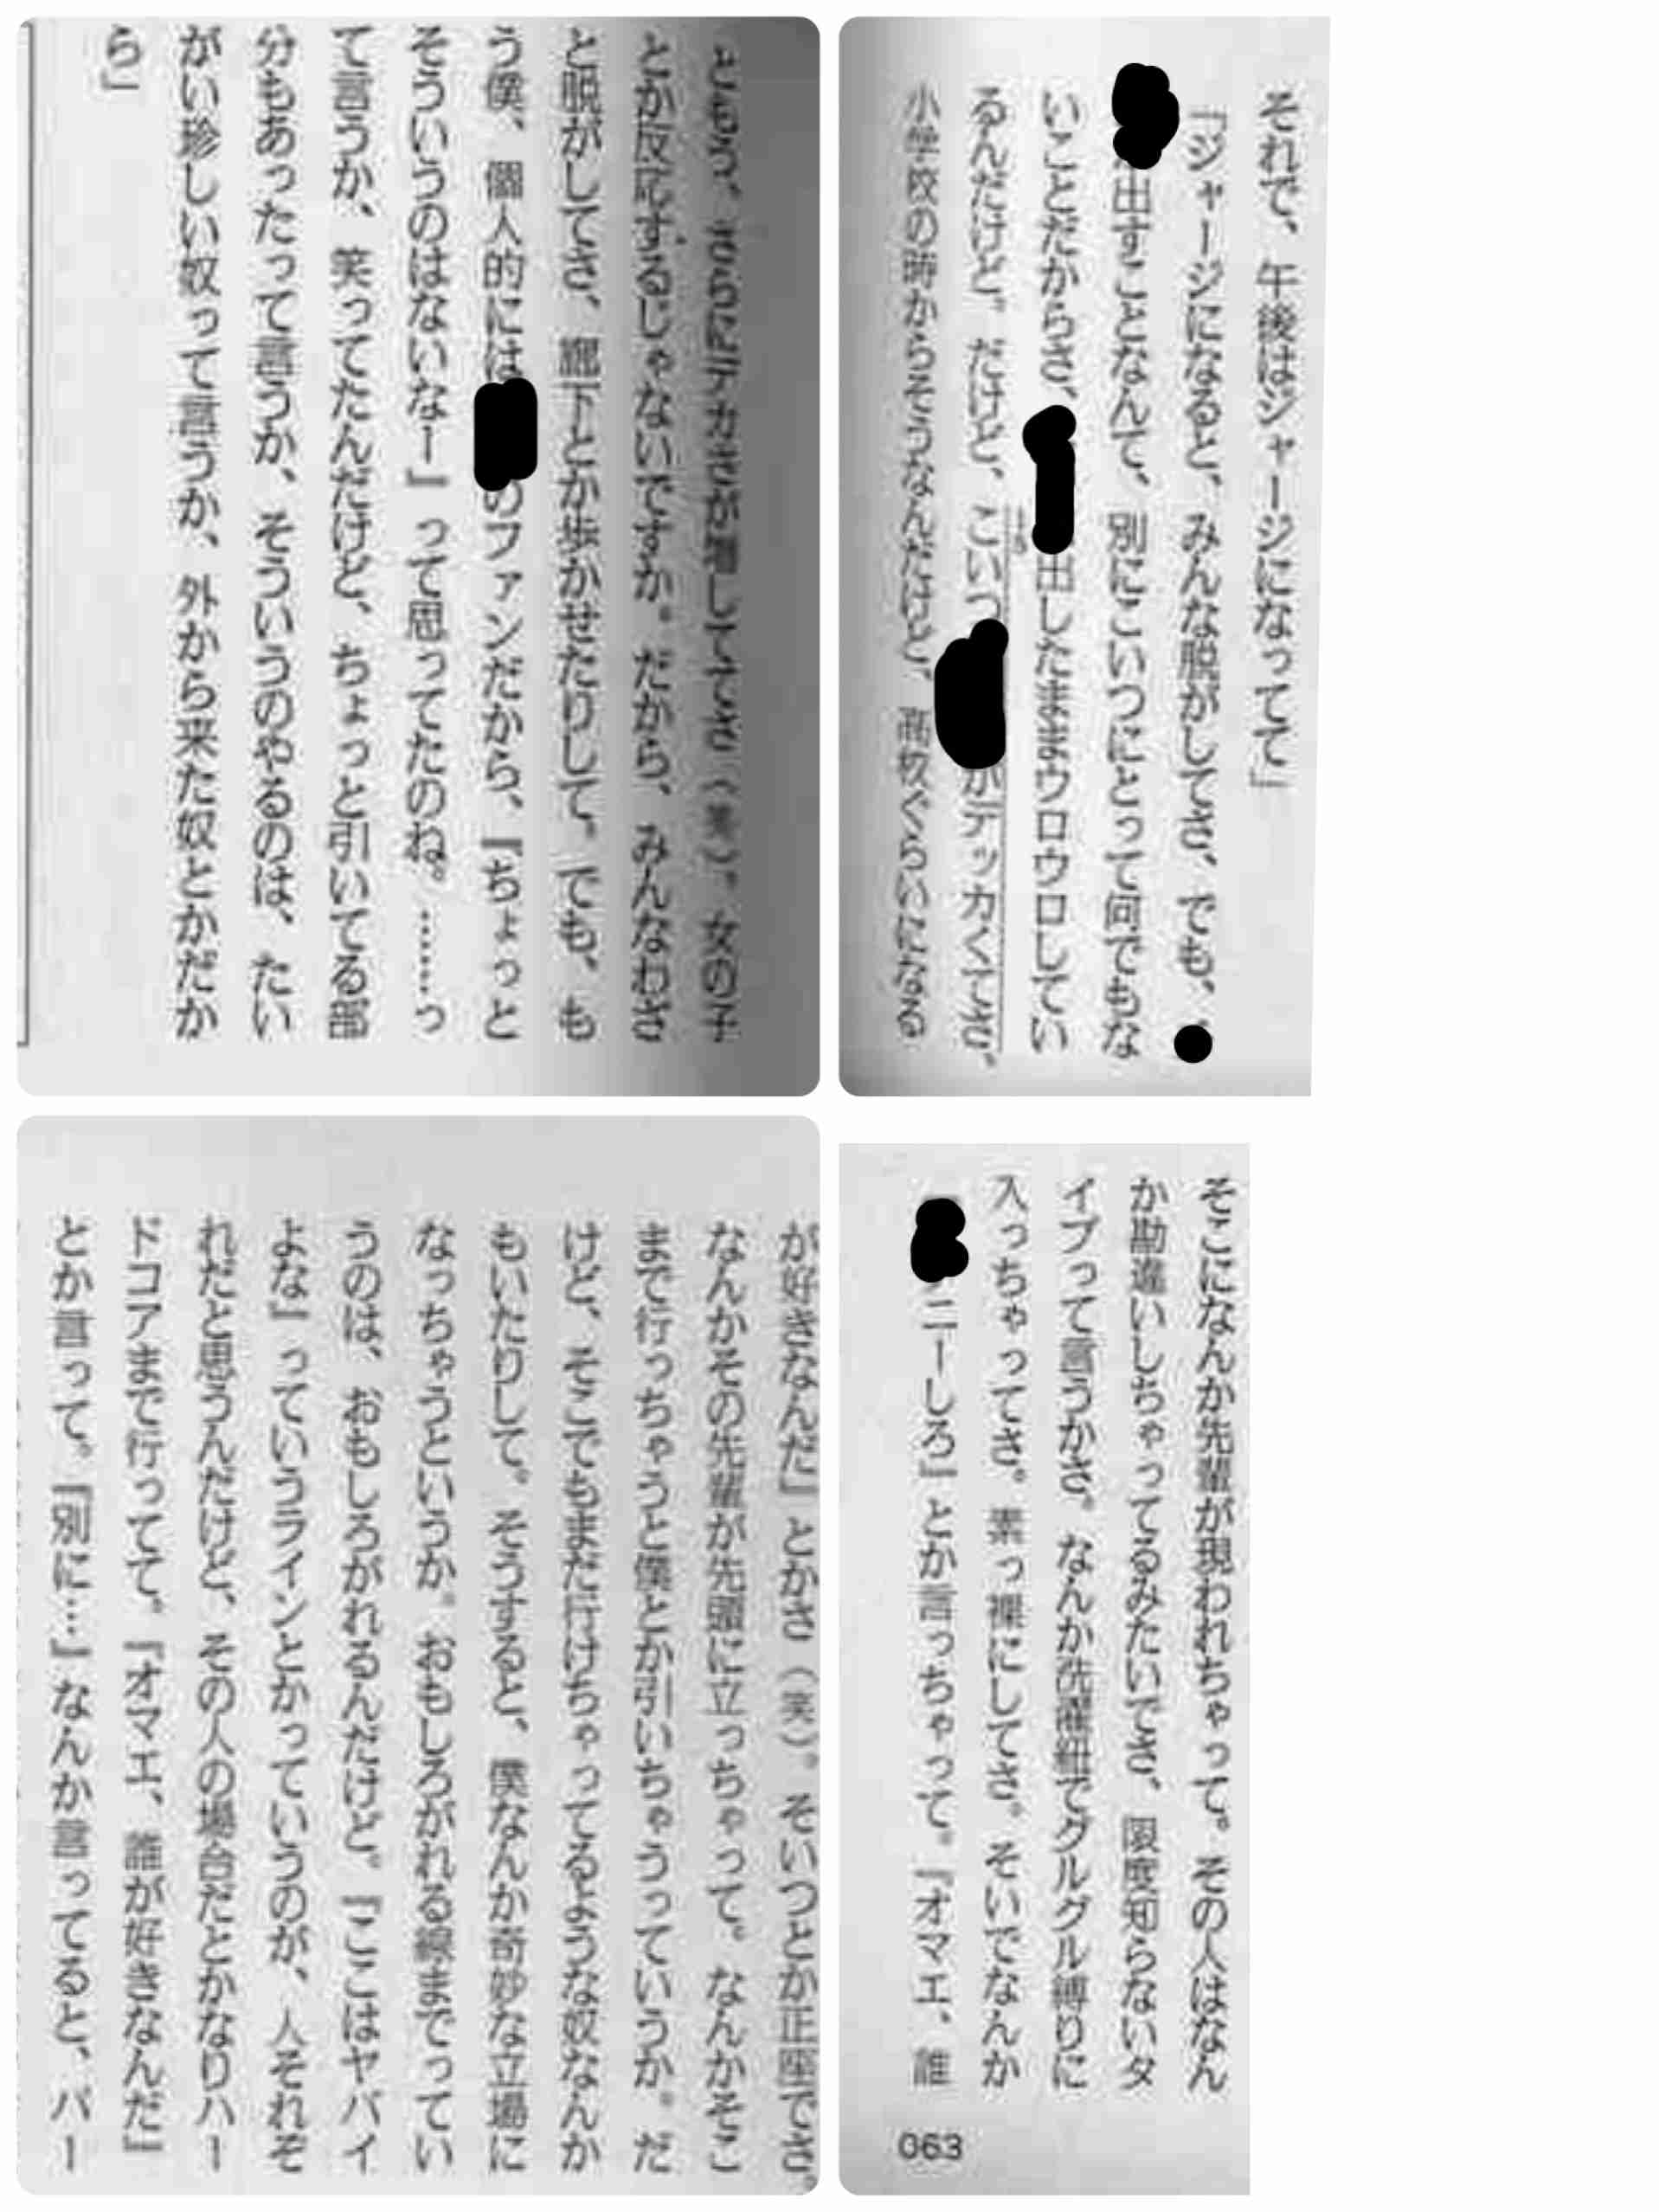 それで、午後はジャージになってて」
「ジャージになると、みんな脱がしてさ、でも、
出すことなんて、別にこいつにとって何でもな
いことだからさ、出したままウロウロしてい
るんだけど。だけど、こいつがデッカくてさ、
小学校の時からそうなんだけど、高校ぐらいになる
ともう、さらにデカさが増しててさ（笑）。女の子
とか反応するじゃないですか。だから、みんなわざ
と脱がしてさ、廊下とか歩かせたりして。でも、も
う僕、個人的にはのファンだから、『ちょっと
そういうのはないなー』って思ってたのね。……っ
て言うか、笑ってたんだけど、ちょっと引いてる部
分もあったって言うか、そういうのやるのは、たい
がい珍しい奴って言うか、外から来た奴とかだか
ら」
そこになんか先輩が現われちゃって。その人はなん
か勘違いしちゃってるみたいでさ、限度知らないタ
イプって言うかさ。なんか洗濯紐でグルグル縛りに
入っちゃってさ。素っ裸にしてさ。そいでなんか
ニーしろ』とか言っちゃって。『オマエ、誰
063
が好きなんだ』とかさ（笑）。そいつとか正座でさ。
なんかその先輩が先頭に立っちゃって。なんかそこ
まで行っちゃうと僕とか引いちゃうっていうか。だ
けど、そこでもまだ行けちゃってるような奴なんか
もいたりして。そうすると、僕なんか奇妙な立場に
なっちゃうというか。おもしろがれる線までってい
うのは、おもしろがれるんだけど。『ここはヤバイ
よな』っていうラインとかっていうのが、人それぞ
れだと思うんだけど、その人の場合だとかなりハー
ドコアまで行ってて。『オマエ、誰が好きなんだ』
とか言って。『別に…』なんか言ってると、パー